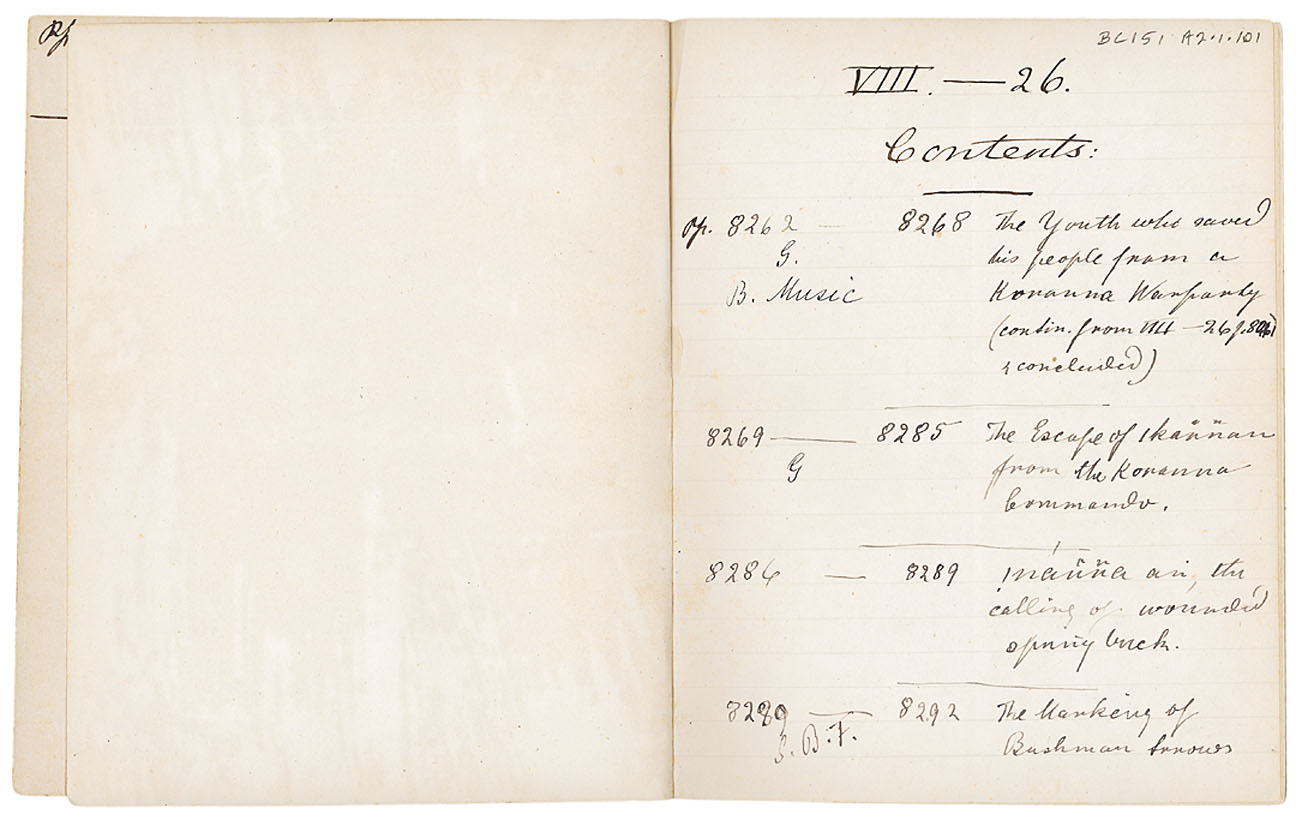 pp
BC151 A2.1.101
VIII. — 26.
Contents:
pp. 8262 — 8268 The Youth who saved
G. his people from a
B. Music Koranna Warparty
(contin. from VIII — 26 p.
& concluded)
8269 — 8285 The Escape of ǀkȁn̈n̈an
G from the Koranna
Commando.
8286 — 8289 the
calling of wounded
springbuck.
8289 — 8292 The Marking of
B. F. Bushman Arrows